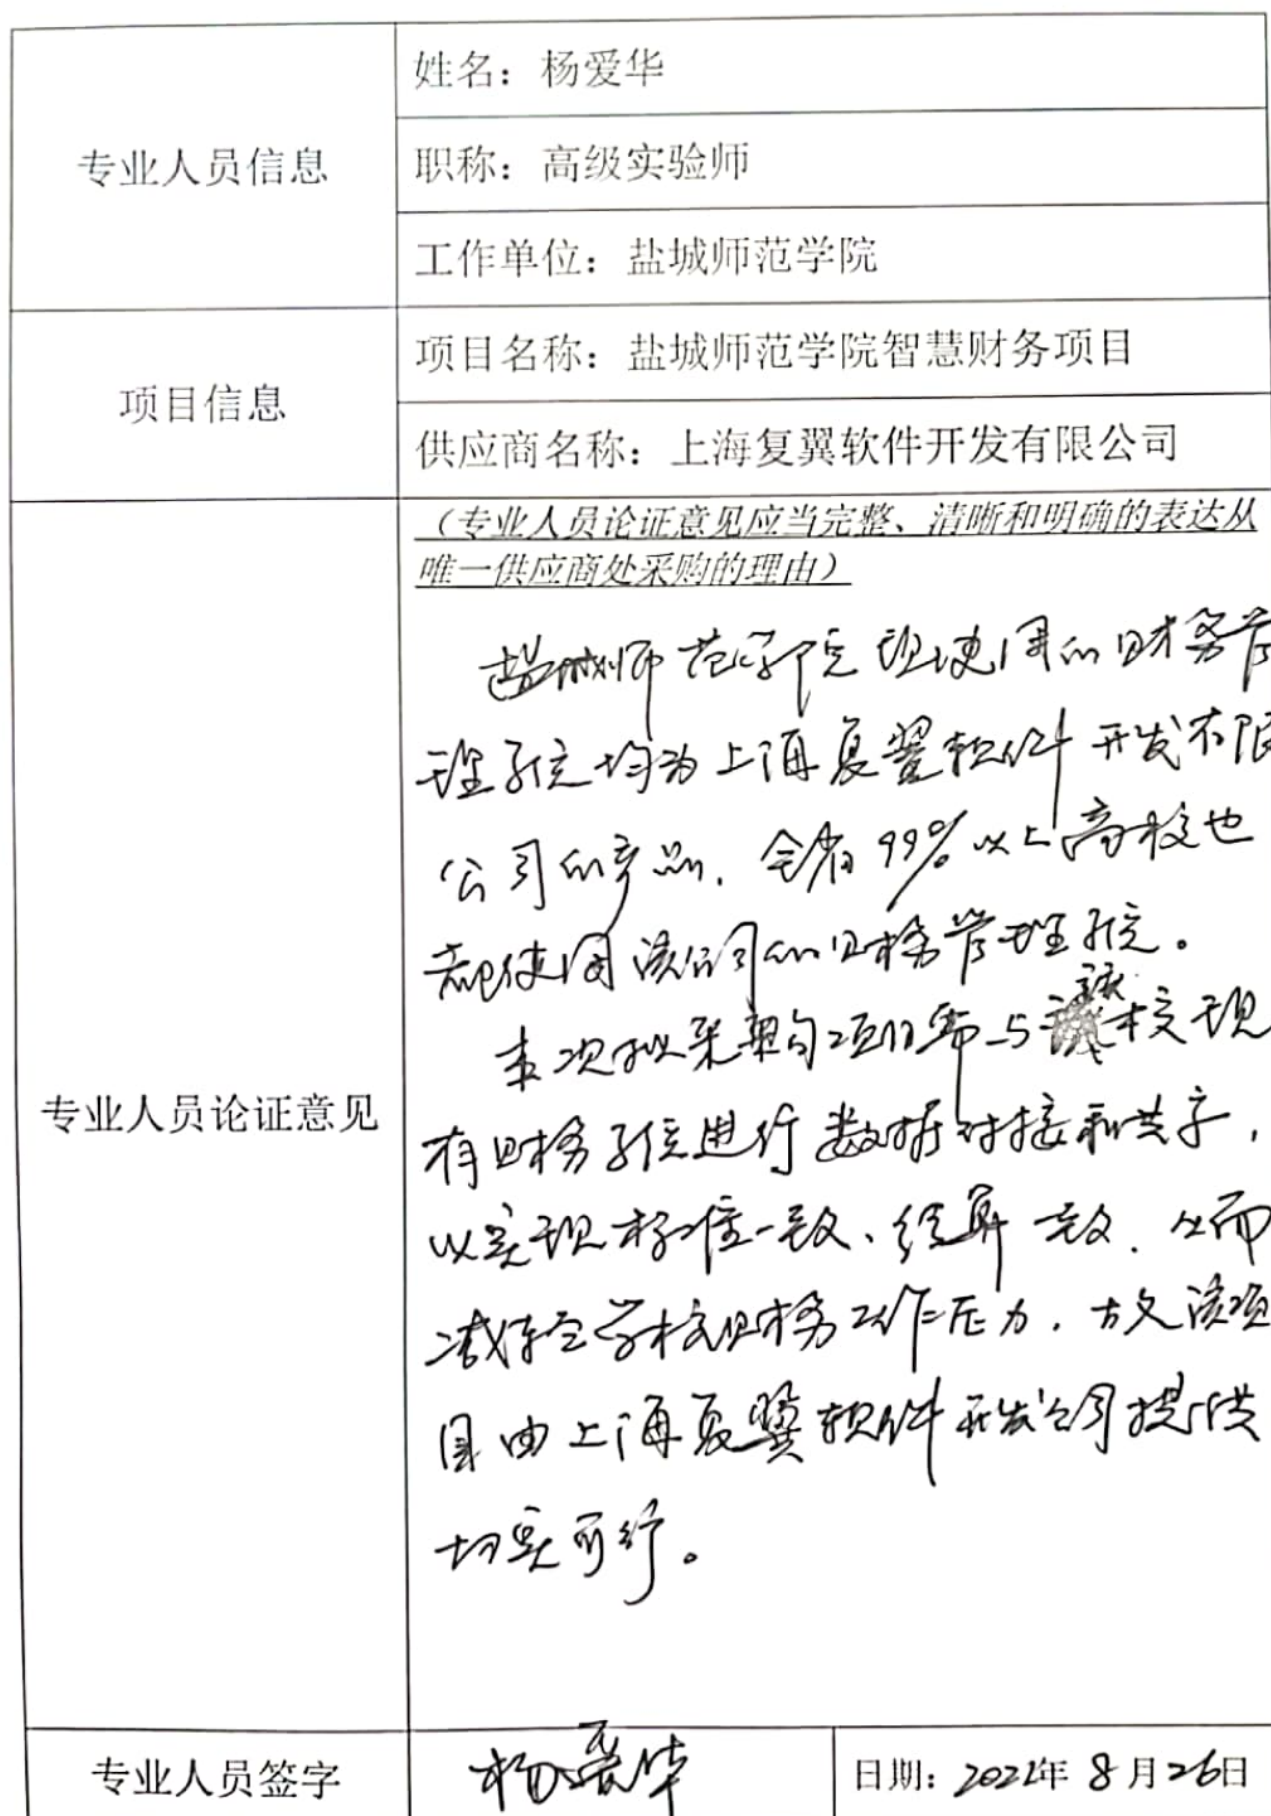 专业人员信息
姓名：杨爱华
职称：高级实验师
工作单位：盐城师范学院
项目信息
项目名称：盐城师范学院智慧财务项目
供应商名称：上海复翼软件开发有限公司
专业人员论证意见
（专业人员论证意见应当完整、清晰和明确的表达从
唯一供应商处采购的理由）
盐城师范学院现使用的财务管
理系统均为上海复翼软件开发有限
公司的产品，全省99%以上高校也
都使用该公司的财务管理系统。
本次拟采购项目需与我校现
有财务系统进行数据对接和共享，
以实现标准一致、结算一致，从而
减轻学校财务工作压力，故该项
目由上海复翼软件开发公司提供
切实可行。
专业人员签字
杨爱华
日期：2021年8月26日